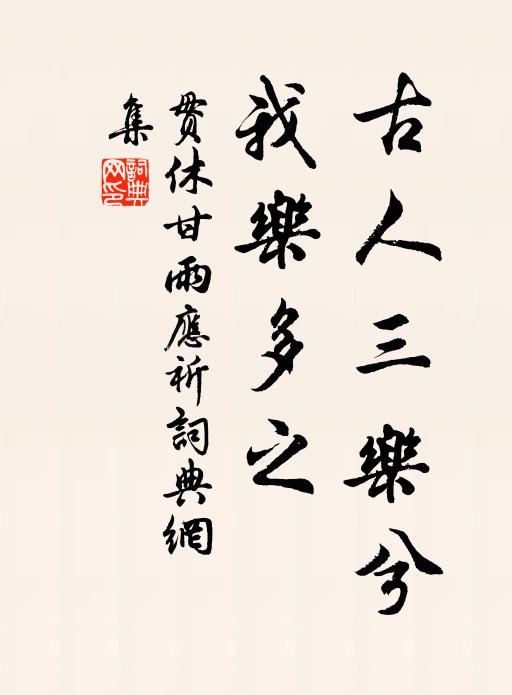 古人三樂兮
我樂多之
貫休甘雨應祈詞典網
集
詞典
网印